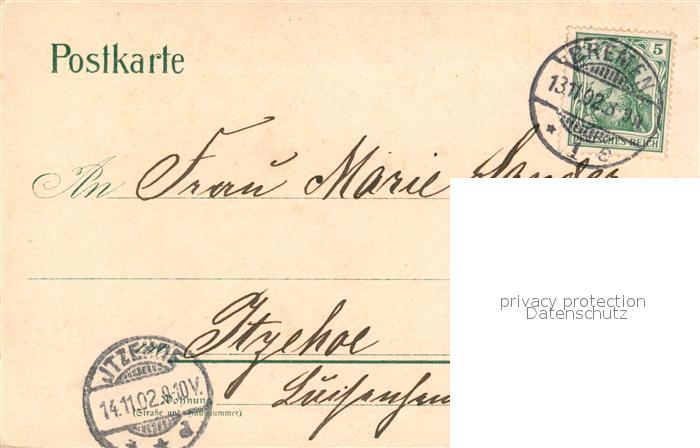 Postkarte
5
BREMEN
13.11.02.8-9N.
* 1 e
DEUTSCHES REICH
An Frau Marie Sander
privacy protection
Datenschutz
in Itzehoe
ITZEHOE
14.11.02.9-10V.
* * d
Wohnung
(Straße und Hausnummer)